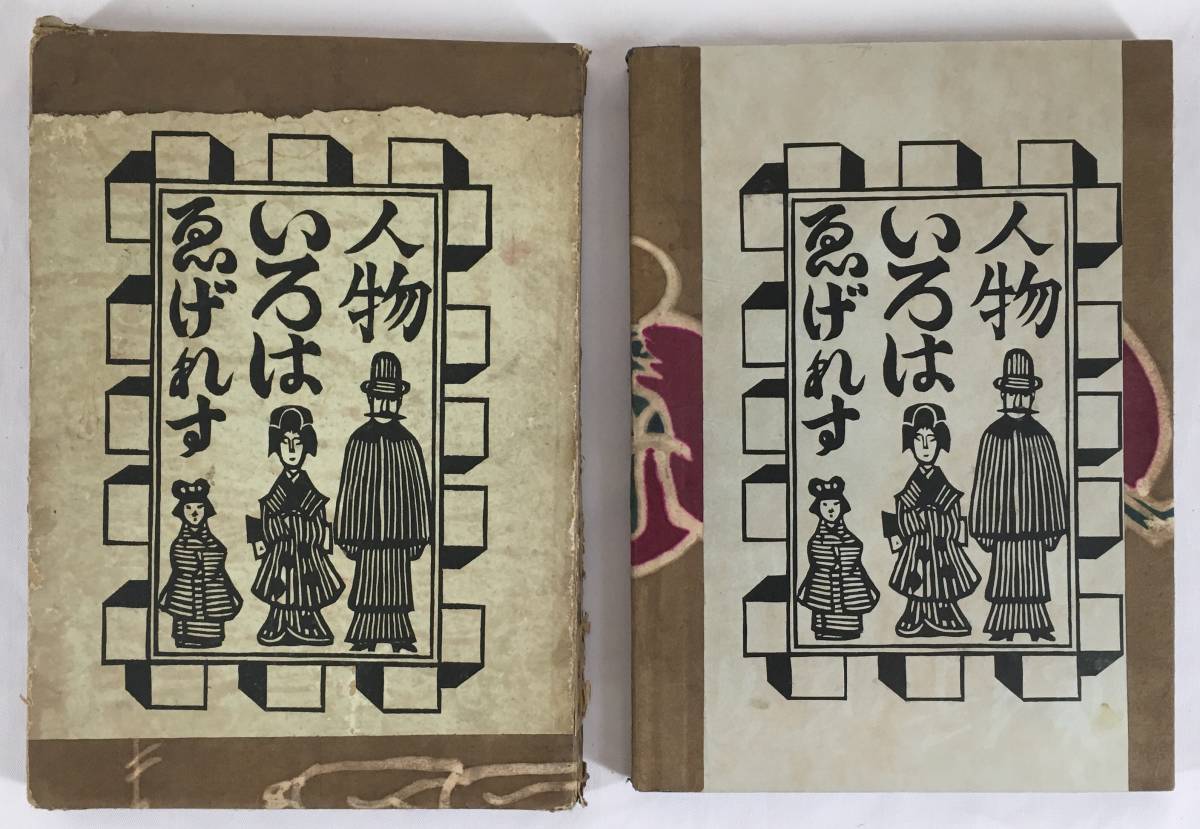 人物
いろは
ゑげれす
人物
いろは
ゑげれす